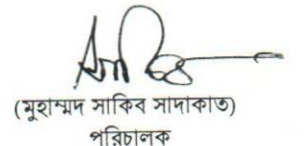 (মুহাম্মদ সাকিব সাদাকাত)
পরিচালক